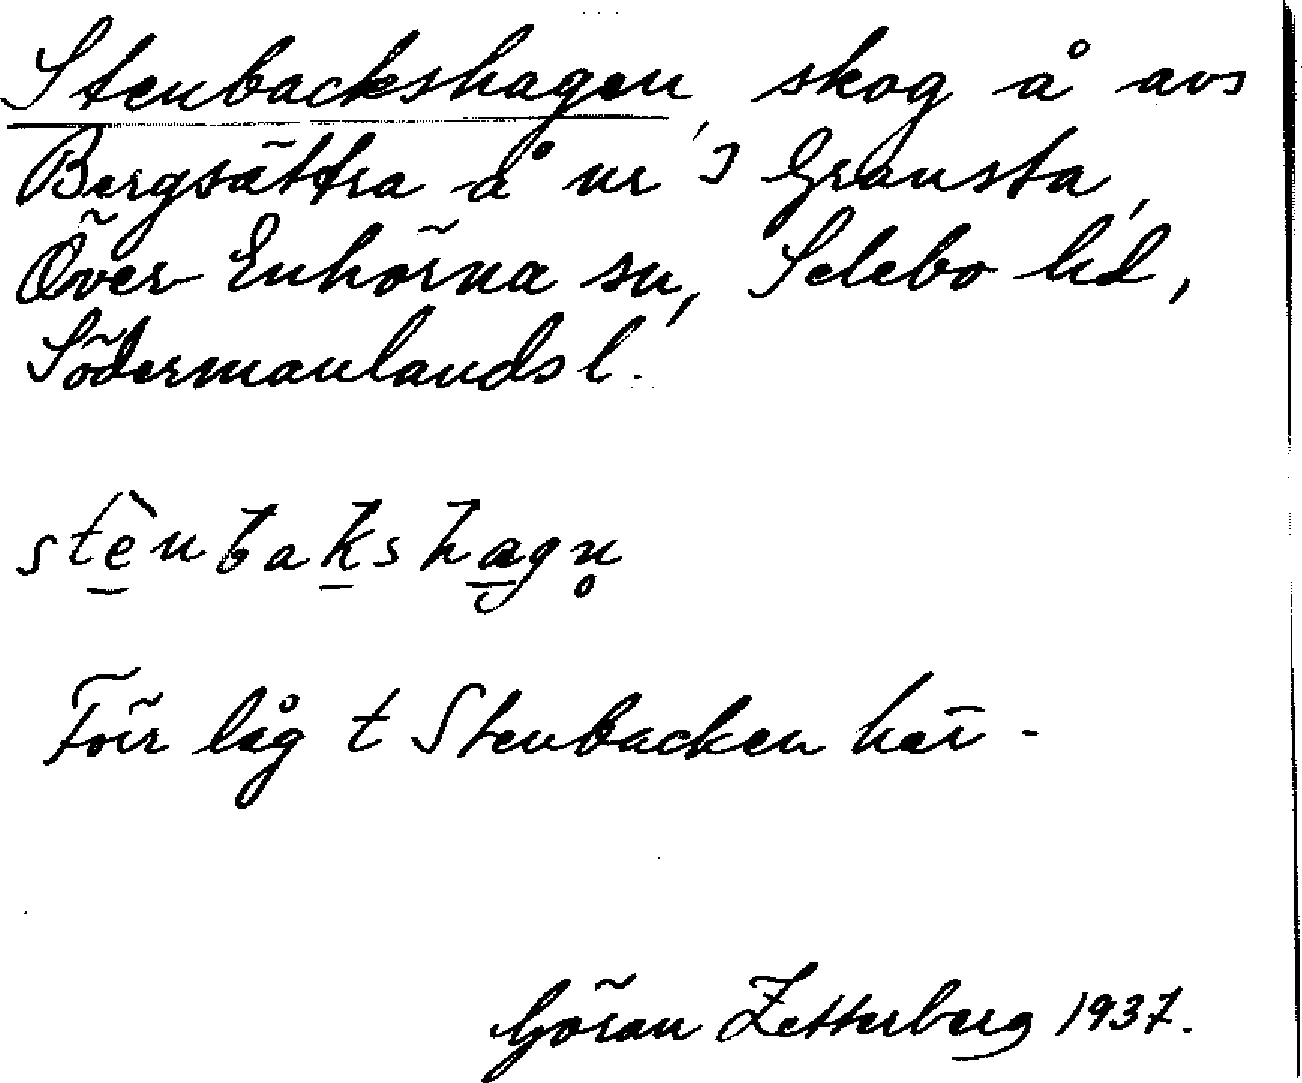 Stenbackshagen, skog å avs
Bergsättra å nr 3 Gransta,
Över Enhörna sn, Selebo hd,
Södermanlands l.
stènbakshagn̥
Förr låg t Stenbacken här.
Göran Zetterberg 1937.